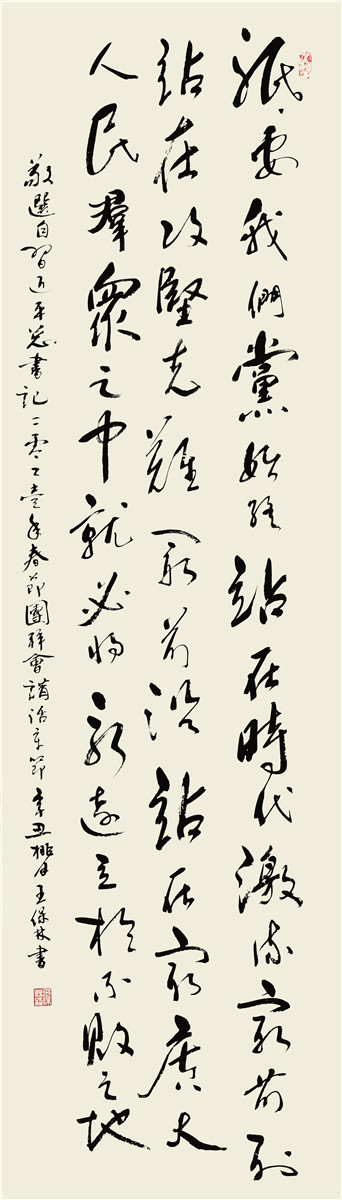 祇要我們黨始終站在時代激流最前列
站在攻堅克難最前沿站在最廣大
人民羣眾之中就必將永遠立於不敗之地
敬選自習近平總書記二零二壹年春節團拜會講話章節辛丑桃月王保林書